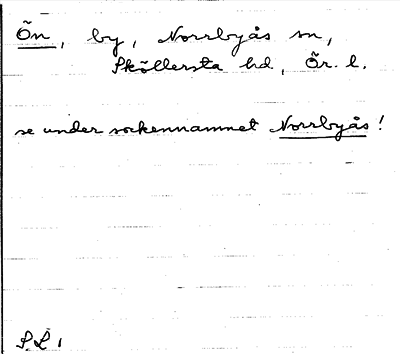 Ön, by, Norrbyås sn,
Sköllersta hd, Ör. l.
se under sockennamnet Norrbyås!
S.L.